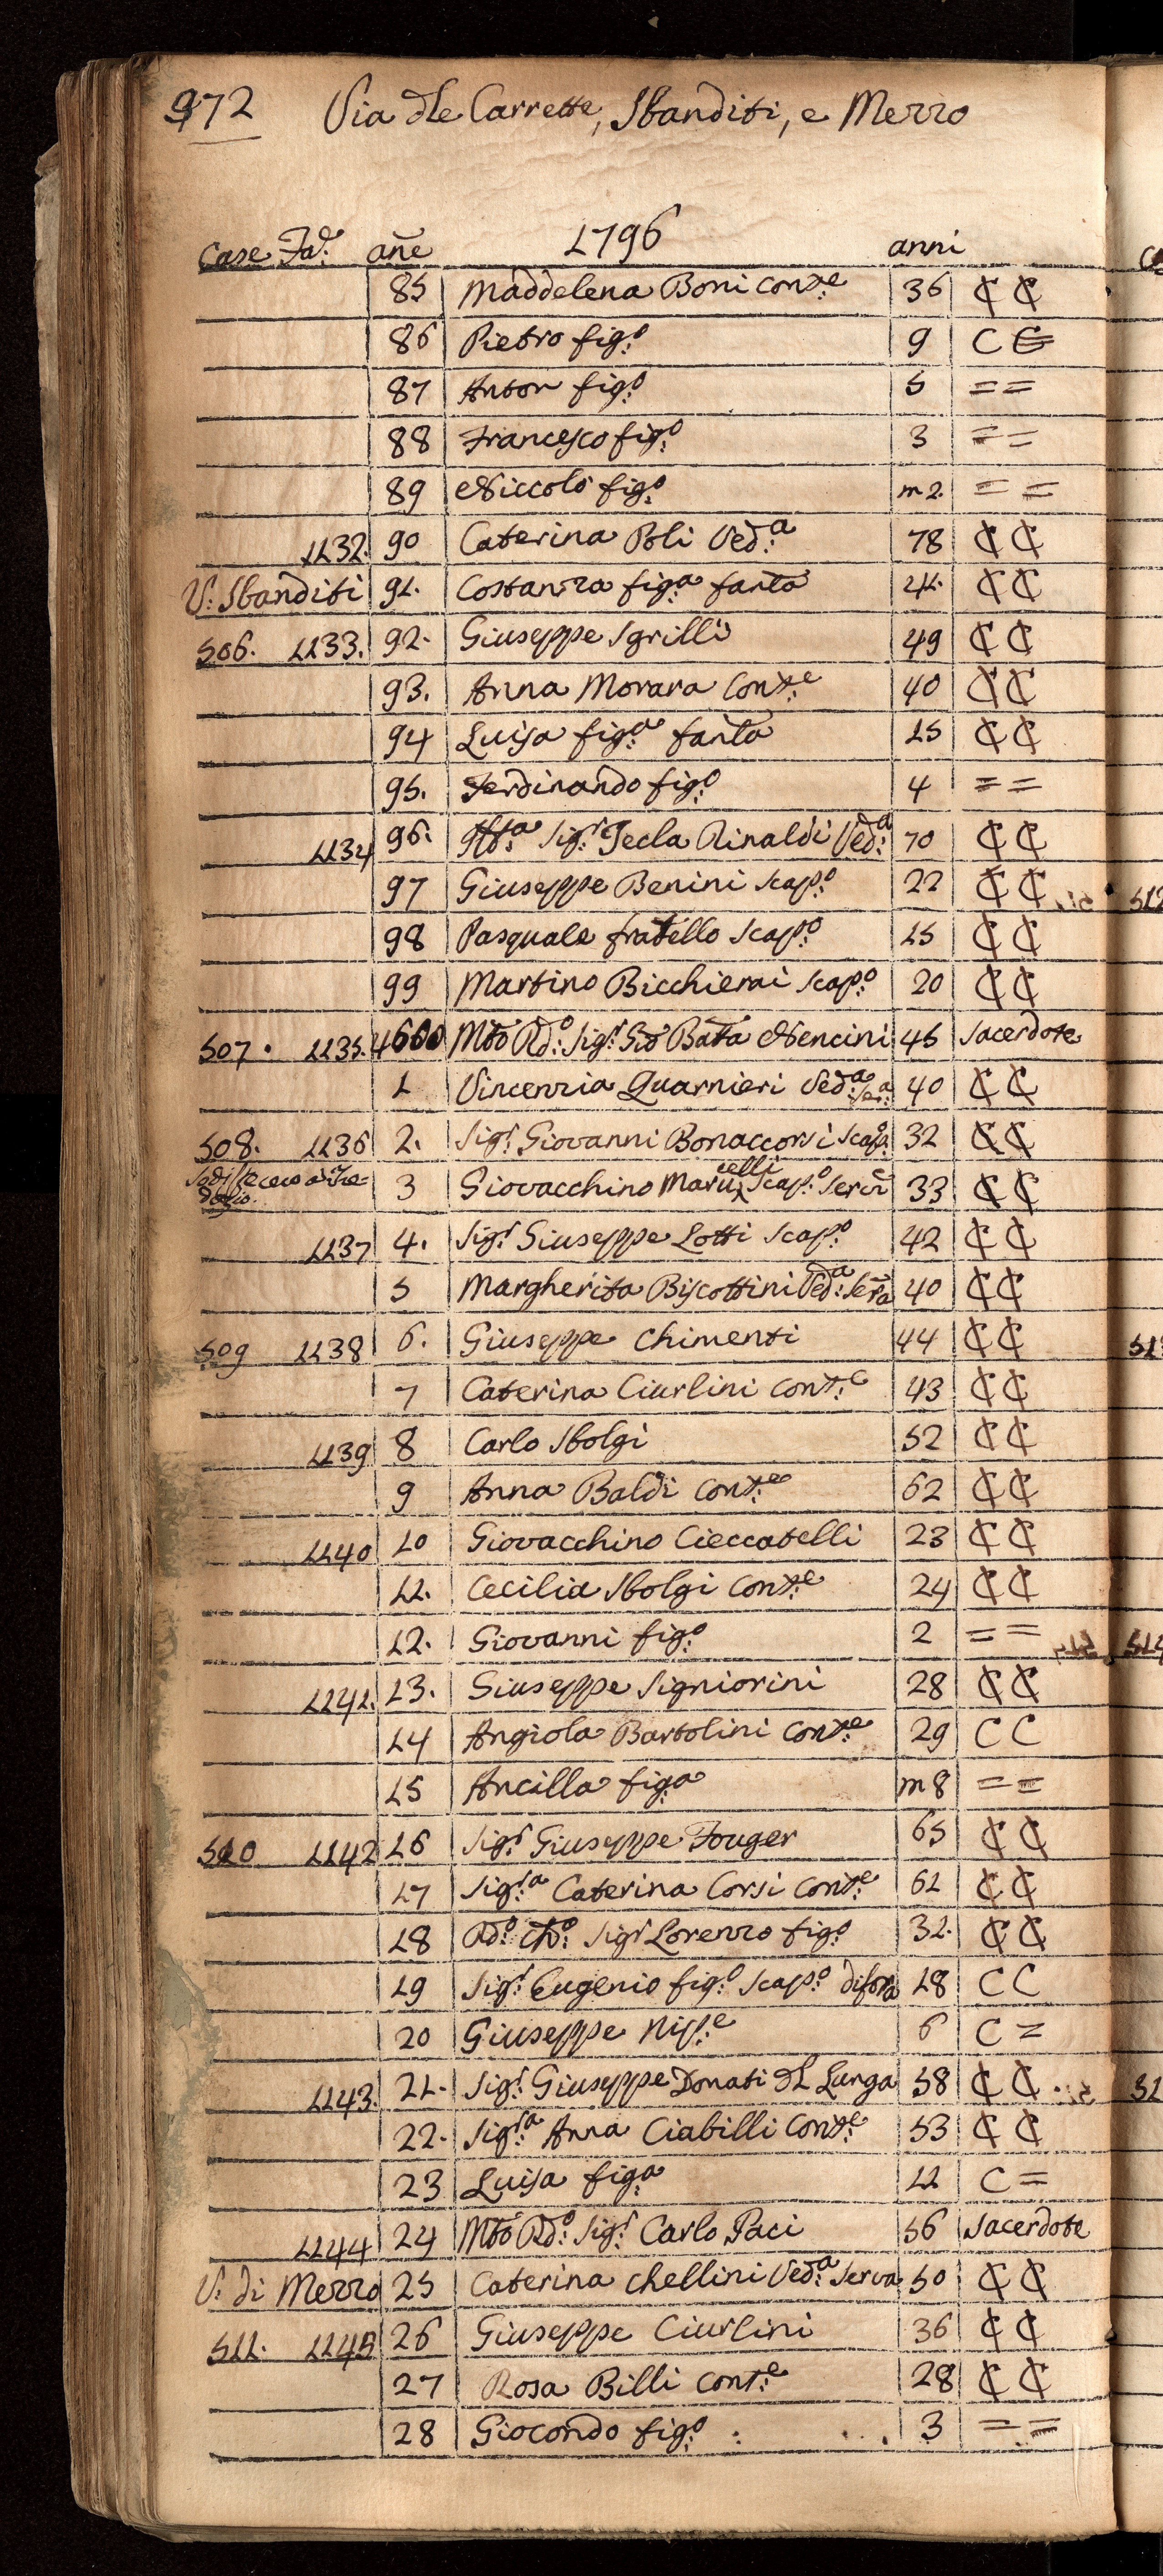 972 Via dle Carrette, Sbanditi, e Mezzo
Case Fa.e añe 1796 anni
85 Maddelena Boni Cont.e 36 C C
86 Pietro fig.o 9 C C
87 Anton fig.o 5 = =
88 Francesco fig.o 3 = =
89 Niccolò fig.o m 2. = =
1132. 90 Caterina Poli Ved.a 78 C C
V. Sbanditi 91. Costanza fig.a fanla 41. C C
506. 1133. 92. Giuseppe Sgrilli 49 C C
93. Anna Morara Cont.e 40 C C
94 Luisa fig.a fanla 15 C C
95. Ferdinando fig.o 4 = =
1134 96. Ill.a Sig.ra Tecla Rinaldi Ved.a 70 C C
97 Giuseppe Benini Scap.o 22 C C
98 Pasquale fratello Scap.o 15 C C
99 Martino Bicchierai Scap.o 20 C C
507. 1135. 4600 Mto Rd.o Sig.r Gio Bata Nencini 45 Sacerdote
1 Vincenzia Guarnieri Ved.a Ser.a 40 C C
508. 1136 2. Sig.r Giovanni Bonaccorsi Scap.o 32 C C
3 Giovacchino Marucelli Scap.o Serv.e 33 C C
1137 4. Sig.r Giuseppe Lotti Scap.o 42 C C
5 Margherita Biscottini Ved.a Serva 40 C C
509 1138 6. Giuseppe Chimenti 44 C C
7 Caterina Ciurlini Cont.e 43 C C
1139 8 Carlo Sbolgi 52 C C
9 Anna Baldi Cont.e 62 C C
1140 10 Giovacchino Cieccatelli 23 C C
11. Cecilia Sbolgi Cont.e 24 C C
12. Giovanni fig.o 2 = =
1141. 13. Giuseppe Signiorini 28 C C
14 Angiola Bartolini Cont.e 29 C C
15 Ancilla fig.a m 8 = =
510 1142 16 Sig.r Giuseppe Fouger 65 C C
17 Sig.ra Caterina Corsi Cont.e 61 C C
18 Rd.o Ch.o Sig.r Lorenzo fig.o 32. C C
19 Sig.r Eugenio fig.o Scap.o difora 18 C C
20 Giuseppe Nip.e 6 C =
1143. 21. Sig.r Giuseppe Donati dl Lunga 58 C C
22. Sig.ra Anna Ciabilli Cont.e 53 C C
23 Luisa fig.a 11 C =
1144 24 Mto Rd.o Sig.r Carlo Paci 56 Sacerdote
V. di Mezzo 25 Caterina Chellini Ved.a Serva 50 C C
511. 1145 26 Giuseppe Ciurlini 36 C C
27 Rosa Billi Cont.e 28 C C
28 Giocondo fig.o 3 = =